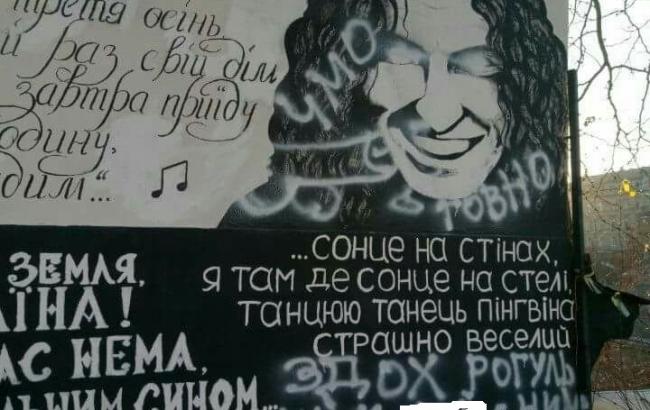 третя осінь
й раз свій дім
завтра прийду
одину,
дим..."
ЧМО
ГОВНО
ЗЕМЛЯ,
ЇНА!
АС НЕМА,
ЛЬШИМ СИНОМ
...СОНЦЕ НА СТІНАХ,
Я ТАМ ДЕ СОНЦЕ НА СТЕЛІ,
ТАНЦЮЮ ТАНЕЦЬ ПІНГВІНА
СТРАШНО ВЕСЕЛИЙ
ЗДОХ РОГУЛЬ